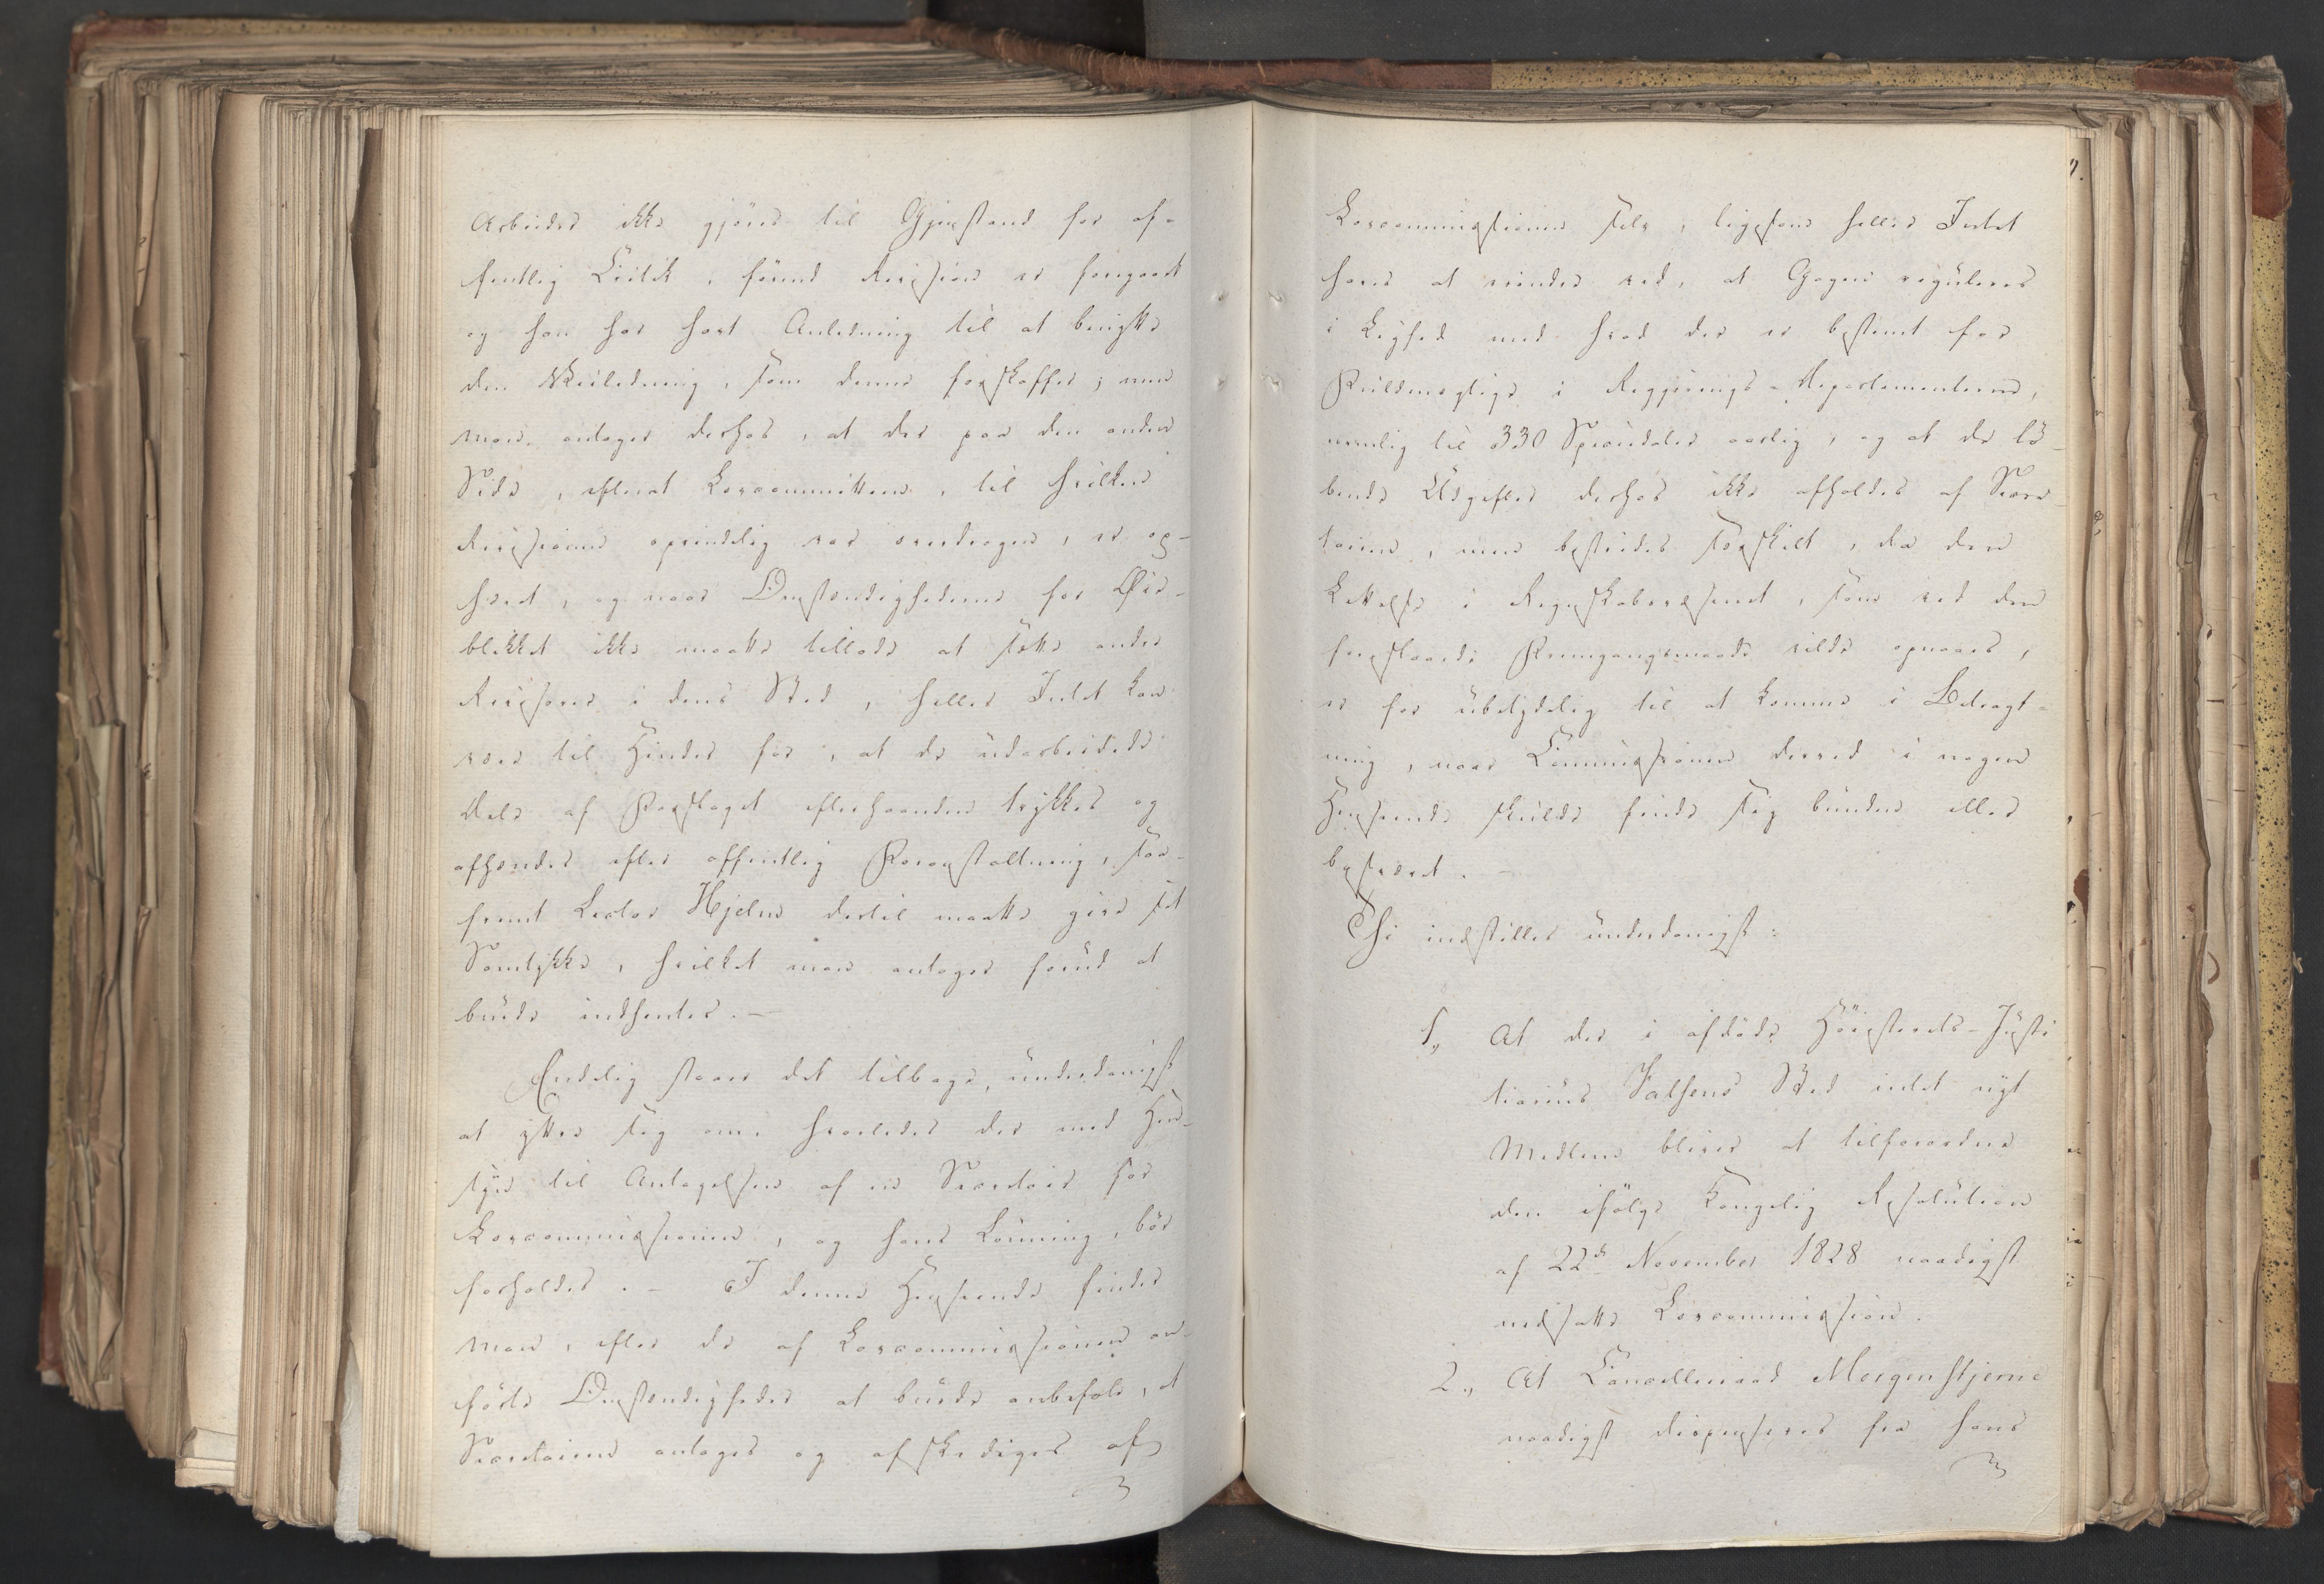 Arbeidet ikke gjøres til Gjenstand for of-
fentlig Critik, førend Revision er foregaaet
og han har havt Anledning til at benytte
den Veiledning, som denne forskaffer; men
man antager derhos, at der paa den anden
Side, efterat Lovcommitteen, til hvilken
Revisionen oprindelig var overdragen, er op-
hævet, og naar Omstændighederne for Øie-
blikket ikke maatte tillade at sætte andre
Revisorer i dens Sted, heller Intet kan
være til Hinder for, at de udarbeidede
Dele af Forslaget efterhaanden trykkes og
afhændes efter offentlig Foranstaltning, saa-
fremt Lector Hjelm dertil maatte give sit
Samtykke, hvilket man antager forud at
burde indhentes. —
Endelig staaer det tilbage, underdanigst
at yttre sig om, hvorledes der med Hen-
syn til Antagelsen af en Secretair for
Lovcommissionen, og hans Lønning, bør
forholdes. — I denne Henseende finder
man, efter de af Lovcommissionen an-
førte Omstændigheder at burde anbefale, at
Secretairen antages og afskediges af
Lovcommissionen selv, ligesom heller Intet
haves at erindre ved, at Gagen reguleres
i Lighed med hvad der er bestemt for
Fuldmægtige i Regjerings-Departementerne,
nemlig til 330 Speciedaler aarlig, og at de lø-
bende Udgifter derhos ikke afholdes af Secre-
tairen, men bestrides særskilt, da den
Lettelse i Regnskabsvæsenet, som ved den
foreslaaede Fremgangsmaade vilde opnaaes,
er for ubetydelig til at komme i Betragt-
ning, naar Commissionen derved i nogen
Henseende skulde finde sig bunden eller
besværet. —
Thi indstilles underdanigst:
1., At der i afdøde Høiesterets-Justi
tiarius Falsens Sted intet nyt
Medlem bliver at tilforordne
den ifølge Kongelig Resolution
af 22de November 1828 naadigst
nedsatte Lovcommission.
2., At Cancelleraad Morgenstjerne
naadigst dispenseres fra hans